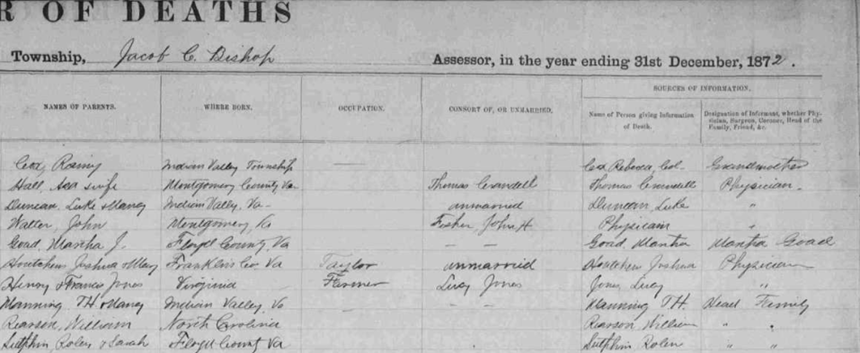 R OF DEATHS
Township, Jacob C. Bishop Assessor, in the year ending 31st December, 1872.
SOURCES OF INFORMATION.
NAMES OF PARENTS. WHERE BORN. OCCUPATION. CONSORT OF, OR UNMARRIED. Name of Person giving Information of Death. Designation of Informant, whether Physician, Surgeon, Coroner, Head of the Family, Friend, &c.
Cox, Indian Valley Township — Cox Rebecca, Col. Grandmother
Hall, Asa wife Montgomery County Va Thomas Physician
Duncan, Luke & Nancy Indian Valley, Va unmarried Duncan, Luke "
Walter, John Montgomery, Va John H. Physician "
Goad, Martha J. Floyd County Va — — Goad Martha Martha Goad
Joshua & Mary Franklin Co. Va Taylor unmarried Joshua Physician
Henry & Francis Jones Virginia Farmer Lucy Jones Jones, Lucy "
Manning TH & Nancy Indian Valley, Va Manning T.H. Head Family
William North Carolina William " "
Sutphin, Rolen & Sarah Floyd County Va Sutphin Rolen " "